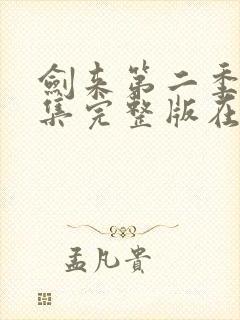 劍来第二季
集完整版在
孟凡貴